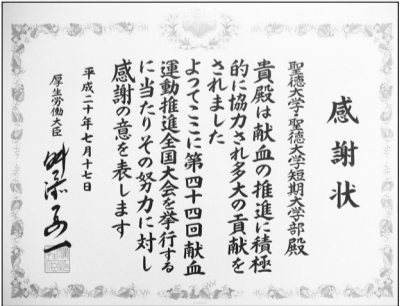 感謝状
聖徳大学・聖徳大学短期大学部殿
貴殿は献血の推進に積極
的に協力され多大の貢献を
されました
よってここに第四十四回献血
運動推進全国大会を挙行する
に当たりその努力に対し
感謝の意を表します
平成二十年七月十七日
厚生労働大臣
舛添要一